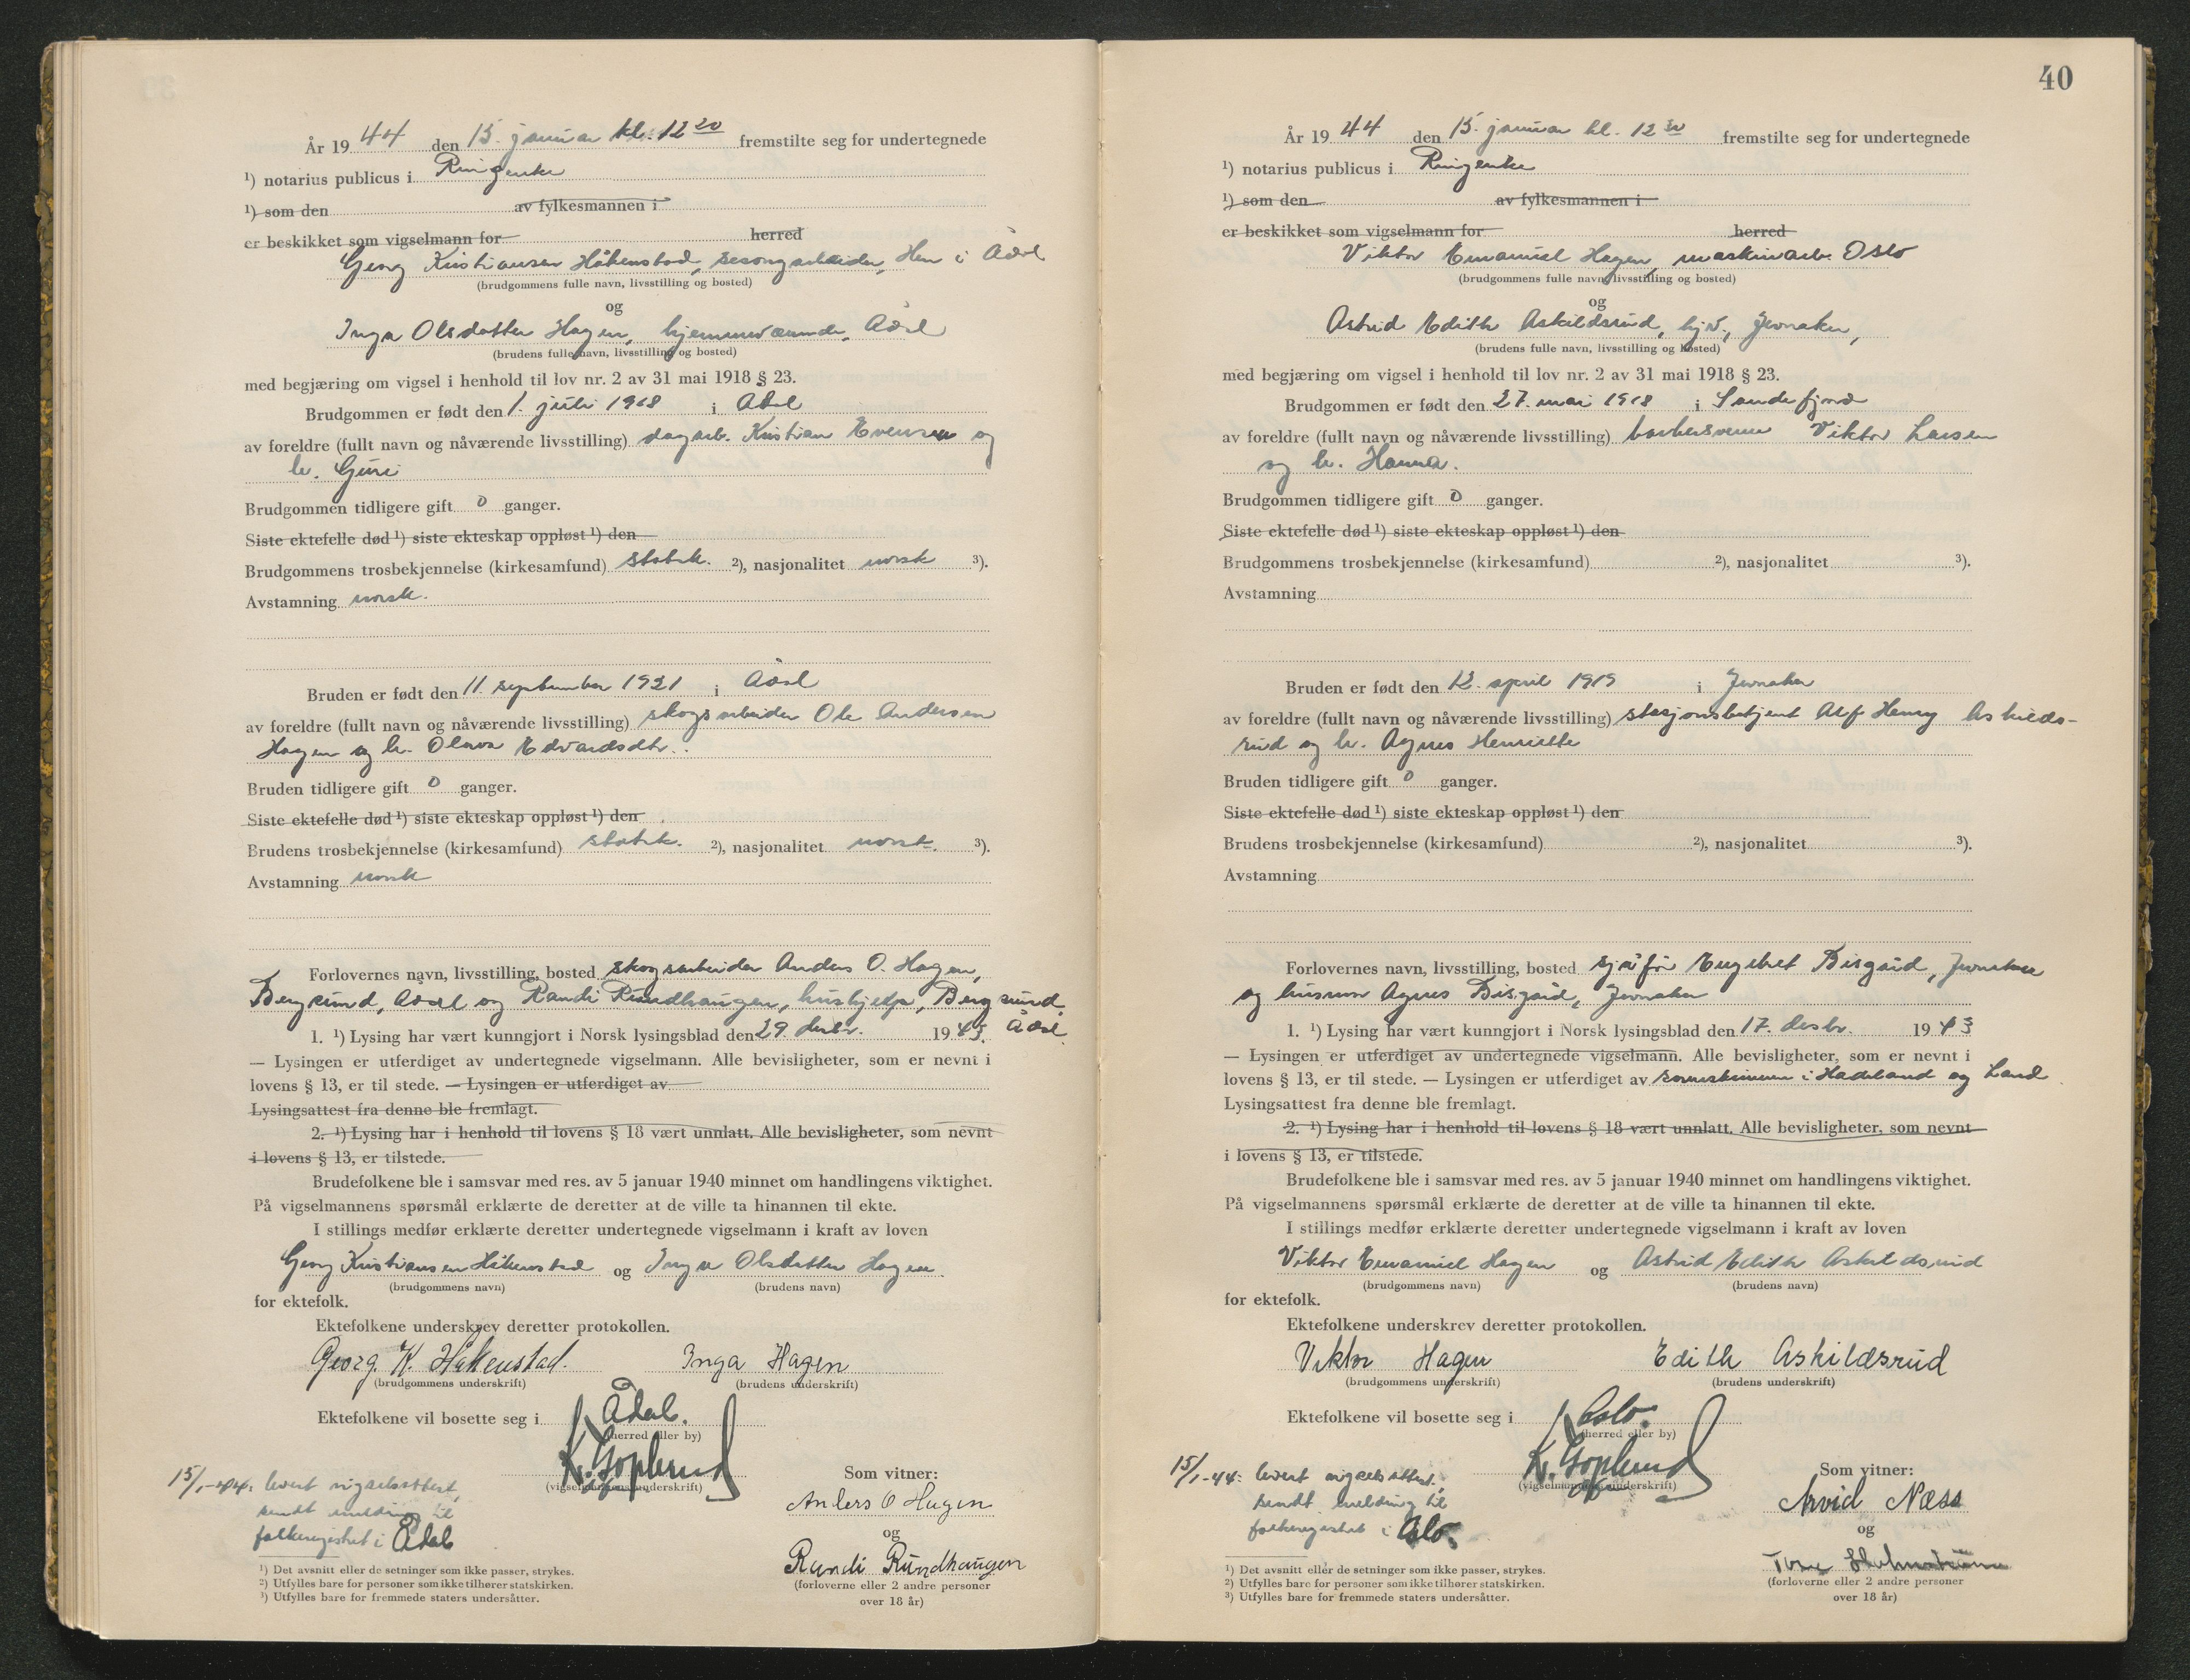 År 1944 den 15. januar kl. 12 20 fremstilte seg for undertegnede
¹) notarius publicus i Ringerike
¹) som den av fylkesmannen i
er beskikket som vigselmann for herred
Georg Kristiansen Håkenstad, sesongarbeider, Hen i Ådal
(brudgommens fulle navn, livsstilling og bosted)
og
Inga Olsdatter Hagen, hjemmeværende, Ådal
(brudens fulle navn, livsstilling og bosted)
med begjæring om vigsel i henhold til lov nr. 2 av 31 mai 1918 § 23.
Brudgommen er født den 1. juli 1918 i Ådal
av foreldre (fullt navn og nåværende livsstilling) dagarb. Kristian Evensen og
h. Guri
Brudgommen tidligere gift 0 ganger.
Siste ektefelle død ¹) siste ekteskap oppløst ¹) den
Brudgommens trosbekjennelse (kirkesamfund) statsk. ²), nasjonalitet norsk ³).
Avstamning norsk.
Bruden er født den 11. september 1921 i Ådal
av foreldre (fullt navn og nåværende livsstilling) skogsarbeider Ole Andersen
Hagen og h. Olava Edvardsdtr.
Bruden tidligere gift 0 ganger.
Siste ektefelle død ¹) siste ekteskap oppløst ¹) den
Brudens trosbekjennelse (kirkesamfund) statsk. ²), nasjonalitet norsk. ³).
Avstamning norsk
Forlovernes navn, livsstilling, bosted skogsarbeider Anders O. Hagen,
Bergsund, Ådal og Randi Rundhaugen, hushjelp, Bergsund,
Ådal
1. ¹) Lysing har vært kunngjort i Norsk lysingsblad den 29. desbr. 1943.
— Lysingen er utferdiget av undertegnede vigselmann. Alle bevisligheter, som er nevnt i
lovens § 13, er til stede. — Lysingen er utferdiget av
Lysingsattest fra denne ble fremlagt.
2. ¹) Lysing har i henhold til lovens § 18 vært unnlatt. Alle bevisligheter, som nevnt
i lovens § 13, er tilstede.
Brudefolkene ble i samsvar med res. av 5 januar 1940 minnet om handlingens viktighet.
På vigselmannens spørsmål erklærte de deretter at de ville ta hinannen til ekte.
I stillings medfør erklærte deretter undertegnede vigselmann i kraft av loven
Georg Kristiansen Håkenstad og Inga Olsdatter Hagen
(brudgommens navn) (brudens navn)
for ektefolk.
Ektefolkene underskrev deretter protokollen.
Georg. K. Håkenstad. Inga Hagen
(brudgommens underskrift) (brudens underskrift)
Ektefolkene vil bosette seg i Ådal.
(herred eller by)
K. Goplerud
(vigselmannens underskrift)
15/1-44: levert vigselsattest,
sendt melding til
folkeregistret i Ådal
Som vitner:
Anders O Hagen
og
Randi Rundhaugen
(forloverne eller 2 andre personer
over 18 år)
¹) Det avsnitt eller de setninger som ikke passer, strykes.
²) Utfylles bare for personer som ikke tilhører statskirken.
³) Utfylles bare for fremmede staters undersåtter.
40
År 1944 den 15. januar kl. 12 30 fremstilte seg for undertegnede
¹) notarius publicus i Ringerike
¹) som den av fylkesmannen i
er beskikket som vigselmann for herred
Viktor Emanuel Hagen, maskinarb. Oslo
(brudgommens fulle navn, livsstilling og bosted)
og
Astrid Edith Askildsrud, hjv., Jevnaker,
(brudens fulle navn, livsstilling og bosted)
med begjæring om vigsel i henhold til lov nr. 2 av 31 mai 1918 § 23.
Brudgommen er født den 27. mai 1918 i Sandefjord
av foreldre (fullt navn og nåværende livsstilling) barbersvenn Viktor Larsen
og h. Hanna.
Brudgommen tidligere gift 0 ganger.
Siste ektefelle død ¹) siste ekteskap oppløst ¹) den
Brudgommens trosbekjennelse (kirkesamfund) ²), nasjonalitet ³).
Avstamning
Bruden er født den 12. april 1919 i Jevnaker
av foreldre (fullt navn og nåværende livsstilling) stasjonsbetjent Alf Henry Askilds-
rud og h. Agnes Henriette
Bruden tidligere gift 0 ganger.
Siste ektefelle død ¹) siste ekteskap oppløst ¹) den
Brudens trosbekjennelse (kirkesamfund) ²), nasjonalitet ³).
Avstamning
Forlovernes navn, livsstilling, bosted sjåfør Engebret Bisgård, Jevnaker
og husmor Agnes Bisgård, Jevnaker
1. ¹) Lysing har vært kunngjort i Norsk lysingsblad den 17. desbr. 1943
— Lysingen er utferdiget av undertegnede vigselmann. Alle bevisligheter, som er nevnt i
lovens § 13, er til stede. — Lysingen er utferdiget av sorenskriveren i Hadeland og Land
Lysingsattest fra denne ble fremlagt.
2. ¹) Lysing har i henhold til lovens § 18 vært unnlatt. Alle bevisligheter, som nevnt
i lovens § 13, er tilstede.
Brudefolkene ble i samsvar med res. av 5 januar 1940 minnet om handlingens viktighet.
På vigselmannens spørsmål erklærte de deretter at de ville ta hinannen til ekte.
I stillings medfør erklærte deretter undertegnede vigselmann i kraft av loven
Viktor Emanuel Hagen og Astrid Edith Askildsrud
(brudgommens navn) (brudens navn)
for ektefolk.
Ektefolkene underskrev deretter protokollen.
Viktor Hagen Edith Askildsrud
(brudgommens underskrift) (brudens underskrift)
Ektefolkene vil bosette seg i Oslo.
(herred eller by)
K. Goplerud
(vigselmannens underskrift)
15/1-44: levert vigselsattest,
sendt melding til
folkeregistret i Oslo.
Som vitner:
Arvid Næss
og
Tore
(forloverne eller 2 andre personer
over 18 år)
¹) Det avsnitt eller de setninger som ikke passer, strykes.
²) Utfylles bare for personer som ikke tilhører statskirken.
³) Utfylles bare for fremmede staters undersåtter.